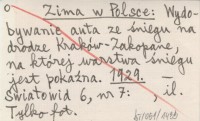 Zima w Polsce: Wydo-
bywanie auta ze śniegu na
drodze Kraków-Zakopane,
na której warstwa śniegu
jest pokaźna. 1929. —
Światowid 6, nr 7: , il.
Tylko fot.